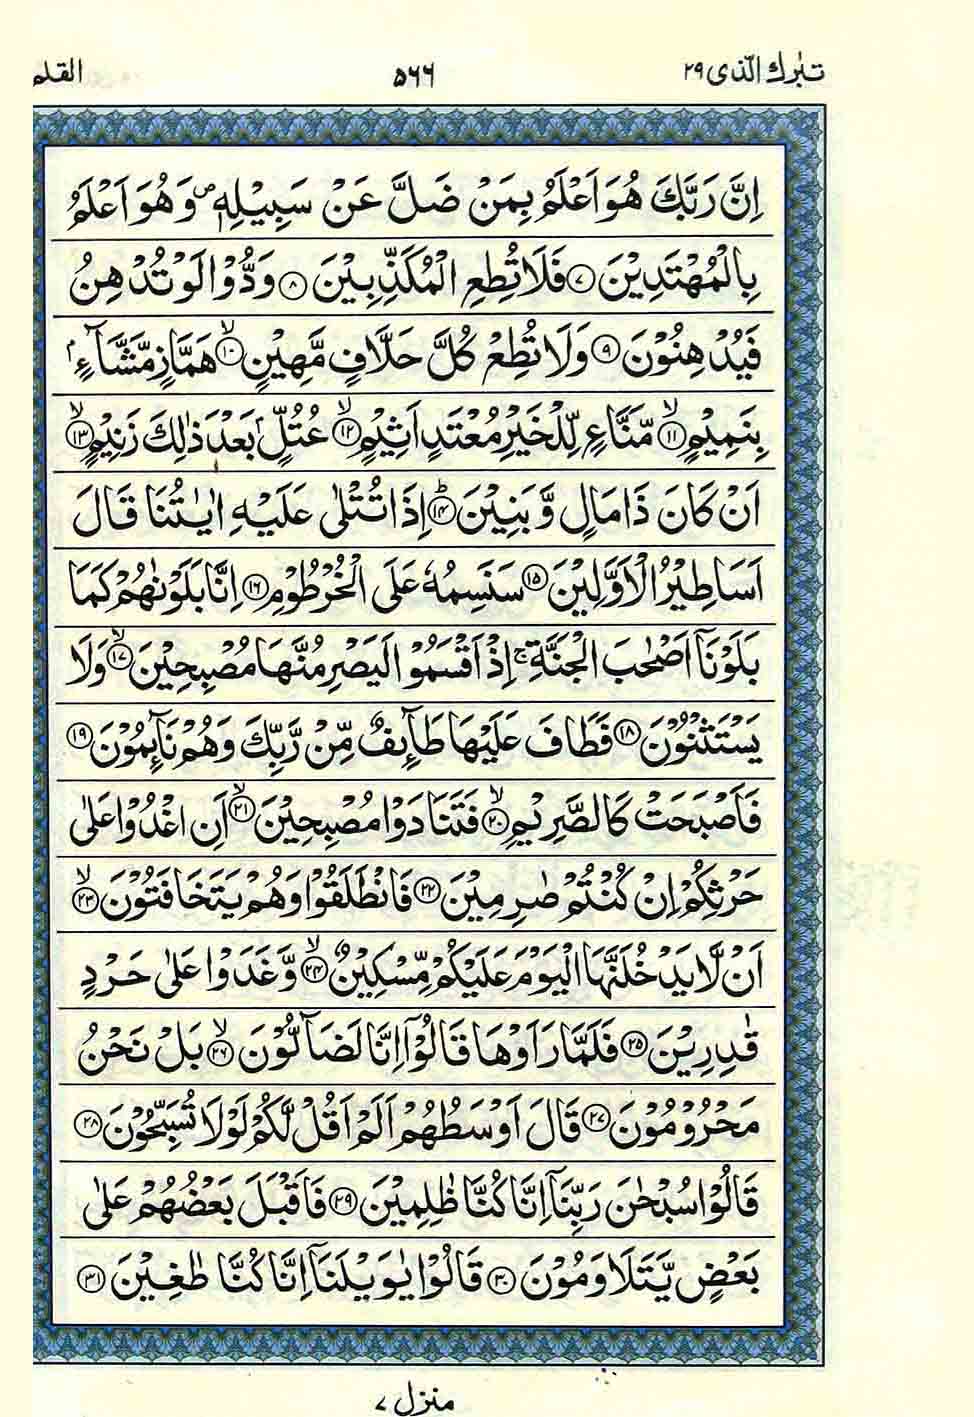 تبٰرك الّذی ۲۹ ۵۶۶ القلم
اِنَّ رَبَّكَ هُوَ اَعْلَمُ بِمَنْ ضَلَّ عَنْ سَبِيْلِهٖ ۪ وَهُوَ اَعْلَمُ
بِالْمُهْتَدِيْنَ ۷ فَلَا تُطِعِ الْمُكَذِّبِيْنَ ۸ وَدُّوْا لَوْ تُدْهِنُ
فَيُدْهِنُوْنَ ۹ وَلَا تُطِعْ كُلَّ حَلَّافٍ مَّهِيْنٍ ۙ۱۰ هَمَّازٍ مَّشَّآءٍۭ
بِنَمِيْمٍ ۙ۱۱ مَّنَّاعٍ لِّلْخَيْرِ مُعْتَدٍ اَثِيْمٍ ۙ۱۲ عُتُلٍّۭ بَعْدَ ذٰلِكَ زَنِيْمٍ ۙ۱۳
اَنْ كَانَ ذَا مَالٍ وَّبَنِيْنَ ؕ۱۴ اِذَا تُتْلٰى عَلَيْهِ اٰيٰتُنَا قَالَ
اَسَاطِيْرُ الْاَوَّلِيْنَ ۱۵ سَنَسِمُهٗ عَلَى الْخُرْطُوْمِ ۱۶ اِنَّا بَلَوْنٰهُمْ كَمَا
بَلَوْنَاۤ اَصْحٰبَ الْجَنَّةِ ۚ اِذْ اَقْسَمُوْا لَيَصْرِمُنَّهَا مُصْبِحِيْنَ ۙ۱۷ وَلَا
يَسْتَثْنُوْنَ ۱۸ فَطَافَ عَلَيْهَا طَآىِٕفٌ مِّنْ رَّبِّكَ وَهُمْ نَآىِٕمُوْنَ ۱۹
فَاَصْبَحَتْ كَالصَّرِيْمِ ۙ۲۰ فَتَنَادَوْا مُصْبِحِيْنَ ۙ۲۱ اَنِ اغْدُوْا عَلٰى
حَرْثِكُمْ اِنْ كُنْتُمْ صٰرِمِيْنَ ۲۲ فَانْطَلَقُوْا وَهُمْ يَتَخَافَتُوْنَ ۙ۲۳
اَنْ لَّا يَدْخُلَنَّهَا الْيَوْمَ عَلَيْكُمْ مِّسْكِيْنٌ ۙ۲۴ وَّغَدَوْا عَلٰى حَرْدٍ
قٰدِرِيْنَ ۲۵ فَلَمَّا رَاَوْهَا قَالُوْۤا اِنَّا لَضَآلُّوْنَ ۙ۲۶ بَلْ نَحْنُ
مَحْرُوْمُوْنَ ۲۷ قَالَ اَوْسَطُهُمْ اَلَمْ اَقُلْ لَّكُمْ لَوْلَا تُسَبِّحُوْنَ ۲۸
قَالُوْا سُبْحٰنَ رَبِّنَاۤ اِنَّا كُنَّا ظٰلِمِيْنَ ۲۹ فَاَقْبَلَ بَعْضُهُمْ عَلٰى
بَعْضٍ يَّتَلَاوَمُوْنَ ۳۰ قَالُوْا يٰوَيْلَنَاۤ اِنَّا كُنَّا طٰغِيْنَ ۳۱
منزل ۷